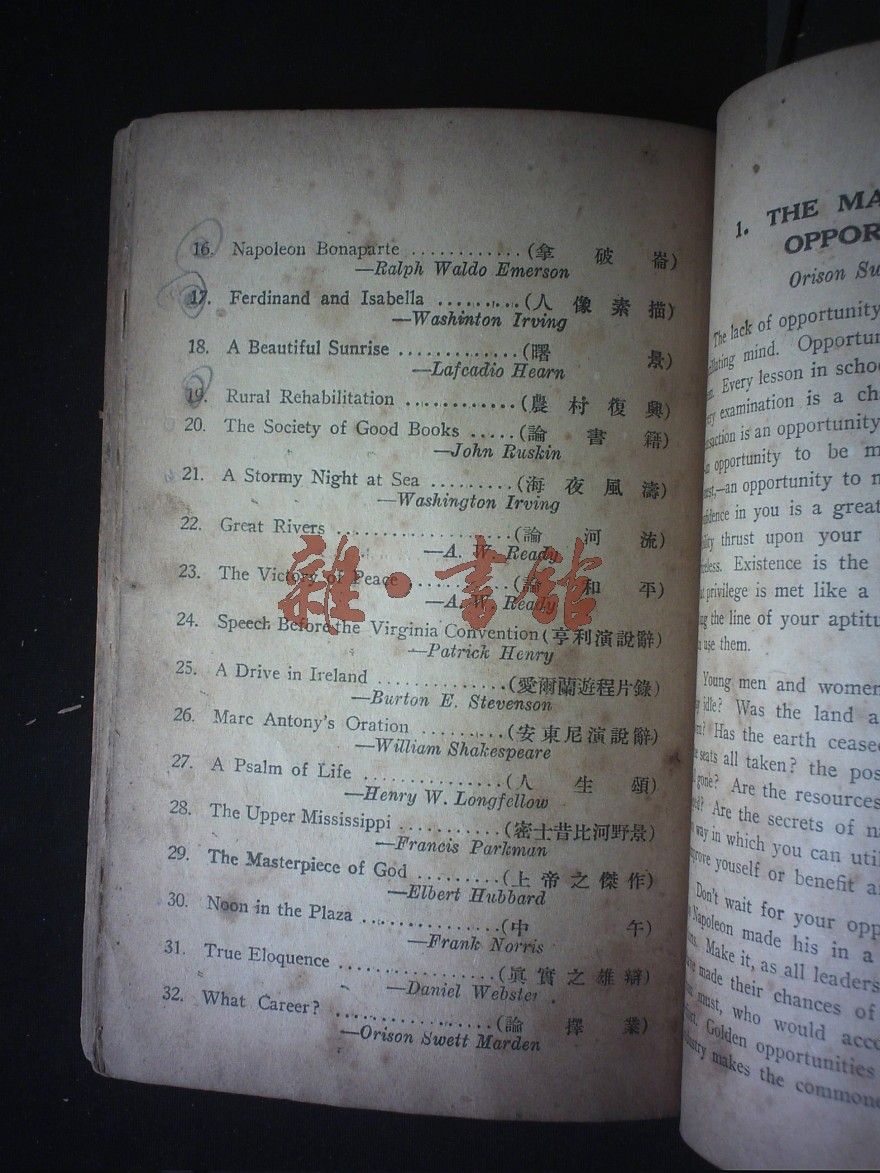 16. Napoleon Bonaparte ............(拿破崙)
—Ralph Waldo Emerson
17. Ferdinand and Isabella .........(人像素描)
—Washinton Irving
18. A Beautiful Sunrise ............(曙景)
—Lafcadio Hearn
19. Rural Rehabilitation ............(農村復興)
20. The Society of Good Books .....(論書籍)
—John Ruskin
21. A Stormy Night at Sea .........(海夜風濤)
—Washington Irving
22. Great Rivers ..................(論河流)
—A. W. Ready
23. The Victory of Peace ..........(論和平)
—A. W. Ready
24. Speech Before the Virginia Convention (亨利演說辭)
—Patrick Henry
25. A Drive in Ireland ..............(愛爾蘭遊程片錄)
—Burton E. Stevenson
26. Marc Antony's Oration .........(安東尼演說辭)
—William Shakespeare
27. A Psalm of Life ...............(人生頌)
—Henry W. Longfellow
28. The Upper Mississippi ...........(密士昔比河野景)
—Francis Parkman
29. The Masterpiece of God .........(上帝之傑作)
—Elbert Hubbard
30. Noon in the Plaza ...............(中午)
—Frank Norris
31. True Eloquence .................(眞實之雄辯)
—Daniel Webster
32. What Career? .................(論擇業)
—Orison Swett Marden
雜·書館
1. THE
Orison
The lack of opportunity
mind.
Every lesson in
examination is a
is an opportunity
opportunity to be
an opportunity to
in you is a great
thrust upon your
Existence is the
privilege is met like a
the line of your
use them.
Young men and women
idle? Was the land
Has the earth
seats all taken? the
gone? Are the resources
Are the secrets of
way in which you can
youself or benefit
Don't wait for your
Napoleon made his in a
Make it, as all leaders
made their chances of
must, who would
Golden opportunities
makes the